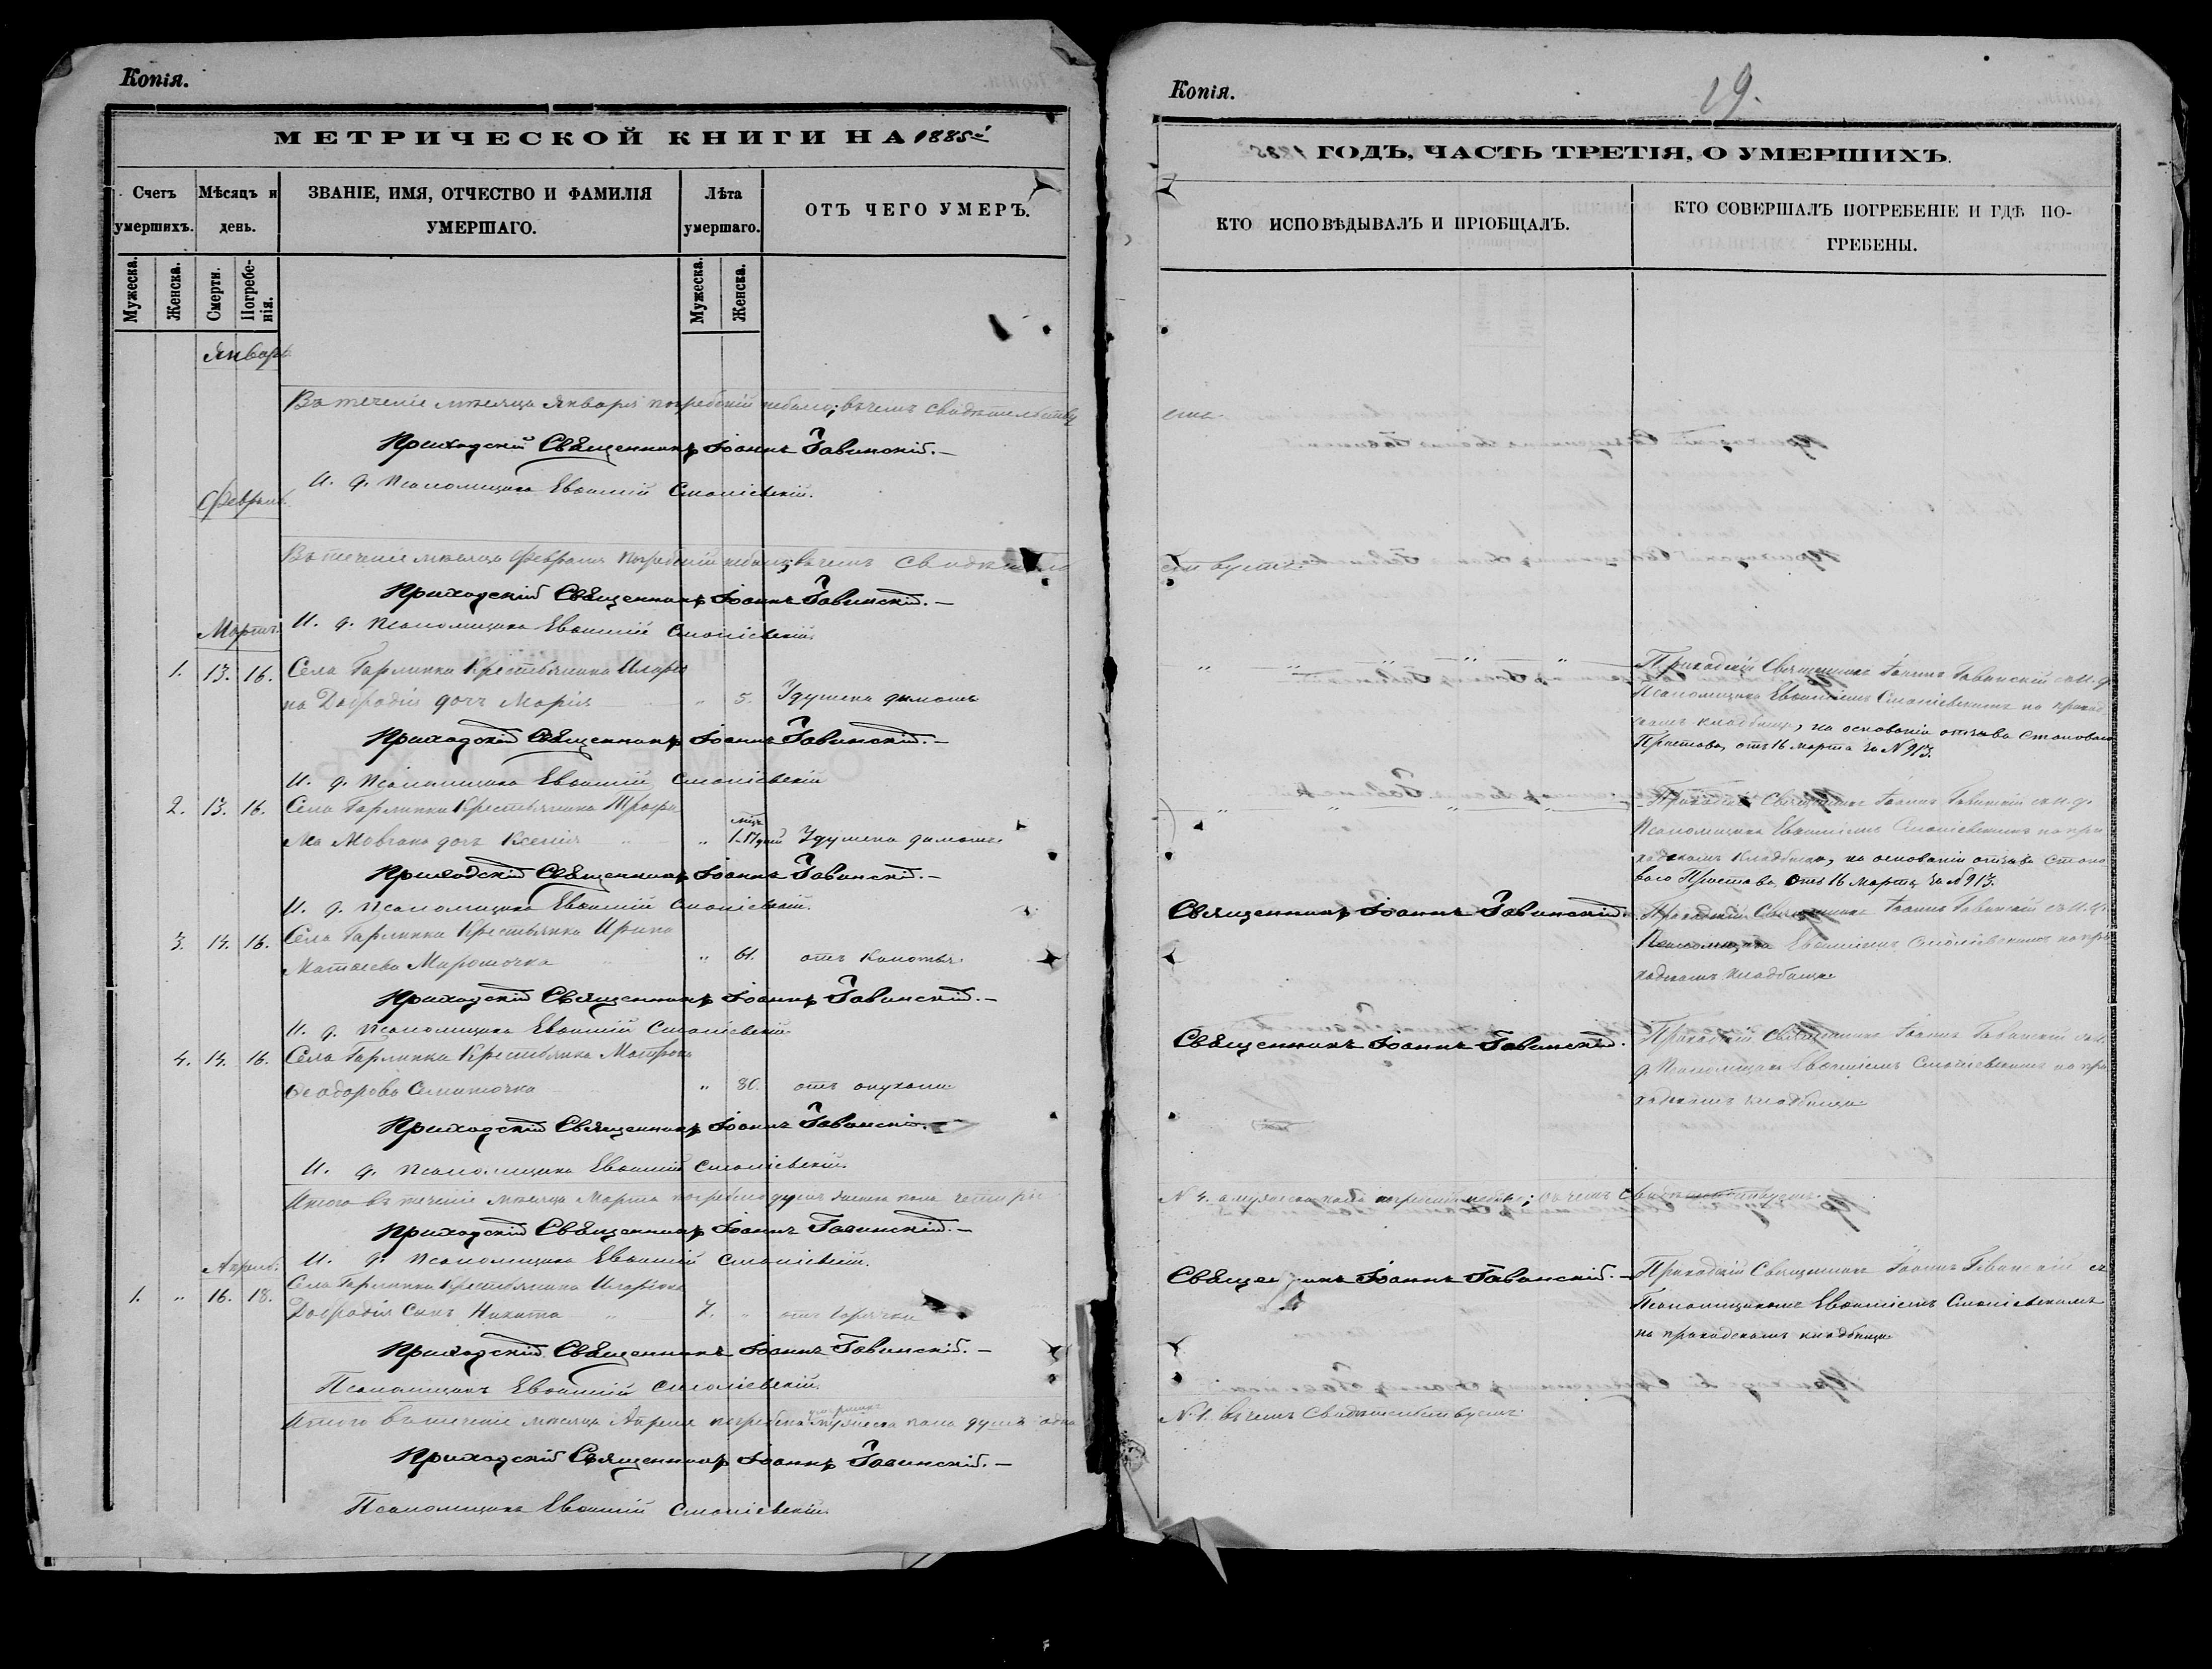 Копія.
МЕТРИЧЕСКОЙ КНИГИ НА 1885й
Счетъ умершихъ.
Мѣсяцъ и день.
ЗВАНІЕ, ИМЯ, ОТЧЕСТВО И ФАМИЛІЯ УМЕРШАГО.
Лѣта умершаго.
ОТЪ ЧЕГО УМЕРЪ.
Мужеска.
Женска.
Смерти.
Погребенія.
Мужеска.
Женска.
Январь
Въ теченіе мѣсяца Января погребеній небыло; въ чемъ свидѣтельству
Приходскій Священникъ Іоаннъ Гавинскій.—
И. д. Псаломщика Евѳимій
Февраль
Въ теченіе мѣсяца Февраля погребеній небыло; въ чемъ свидѣтель
Приходскій Священникъ Іоаннъ Гавинскій.—
И. д. Псаломщика Евѳимій
Мартъ
1. 13. 16. Села Гарлинки Крестьянина Иларіо
на дочь Марія " 5. Удушена дымомъ
Приходскій Священникъ Іоаннъ Гавинскій.—
И. д. Псаломщика Евѳимій
2. 13. 16. Села Гарлинки Крестьянина Трофи
ма Мовчана дочь Ксенія " Удушена дымомъ
Приходскій Священникъ Іоаннъ Гавинскій.—
И. д. Псаломщика Евѳимій
3. 14. 16. Села Гарлинки Крестьянка Ирина
Матѳеева Мирошочка " 61. отъ
Приходскій Священникъ Іоаннъ Гавинскій.—
И. д. Псаломщика Евѳимій
4. 14. 16. Села Гарлинки Крестьянка Матрона
Ѳеодорова " 80. отъ опухоли
Приходскій Священникъ Іоаннъ Гавинскій.—
И. д. Псаломщика Евѳимій
Итого въ теченіе мѣсяца Марта погребено душъ женска пола четыри
Приходскій Священникъ Іоаннъ Гавинскій.—
И. д. Псаломщика Евѳимій
Апрель
1. " 16. 18. Села Гарлинки Крестьянина Иларіона
сынъ Никита 7. " отъ горячки
Приходскій Священникъ Іоаннъ Гавинскій.—
Псаломщикъ Евѳимій
Итого въ теченіе мѣсяца Апреля погребено мужеска пола душъ одна
Приходскій Священникъ Іоаннъ Гавинскій.—
Псаломщикъ Евѳимій
Копія.
19.
ГОДЪ, ЧАСТЬ ТРЕТІЯ, О УМЕРШИХЪ.
КТО ИСПОВѢДЫВАЛЪ И ПРІОБЩАЛЪ.
КТО СОВЕРШАЛЪ ПОГРЕБЕНІЕ И ГДѢ ПО-
ГРЕБЕНЫ.
емъ.
ствуемъ.
Приходскій Священникъ Іоаннъ Гавинскій съ И. д.
Псаломщика Евѳиміемъ на приход
скомъ кладбищѣ, на основаніи отзыва Становаго
Пристава, отъ 16 марта за № 913.
Приходскій Священникъ Іоаннъ Гавинскій съ И. д.
Псаломщика Евѳиміемъ на при
ходскомъ кладбищѣ, на основаніи отзыва Стано
ваго Пристава, отъ 16 Марта за № 913.
Священникъ Іоаннъ Гавинскій.
Приходскій Священникъ Іоаннъ Гавинскій съ И. д.
Псаломщика Евѳиміемъ на при
ходскомъ кладбищѣ
Священникъ Іоаннъ Гавинскій.
Приходскій Священникъ Іоаннъ Гавинскій съ И.
д. Псаломщика Евѳиміемъ на при
ходскомъ кладбищѣ
№ 4. а мужеска пола погребеній небыло; въ чемъ свидѣтельствуемъ.
Священникъ Іоаннъ Гавинскій.—
Приходскій Священникъ Іоаннъ Гавинскій съ
Псаломщикомъ Евѳиміемъ
на приходскомъ кладбищѣ
№ 1. въ чемъ свидѣтельствуемъ.